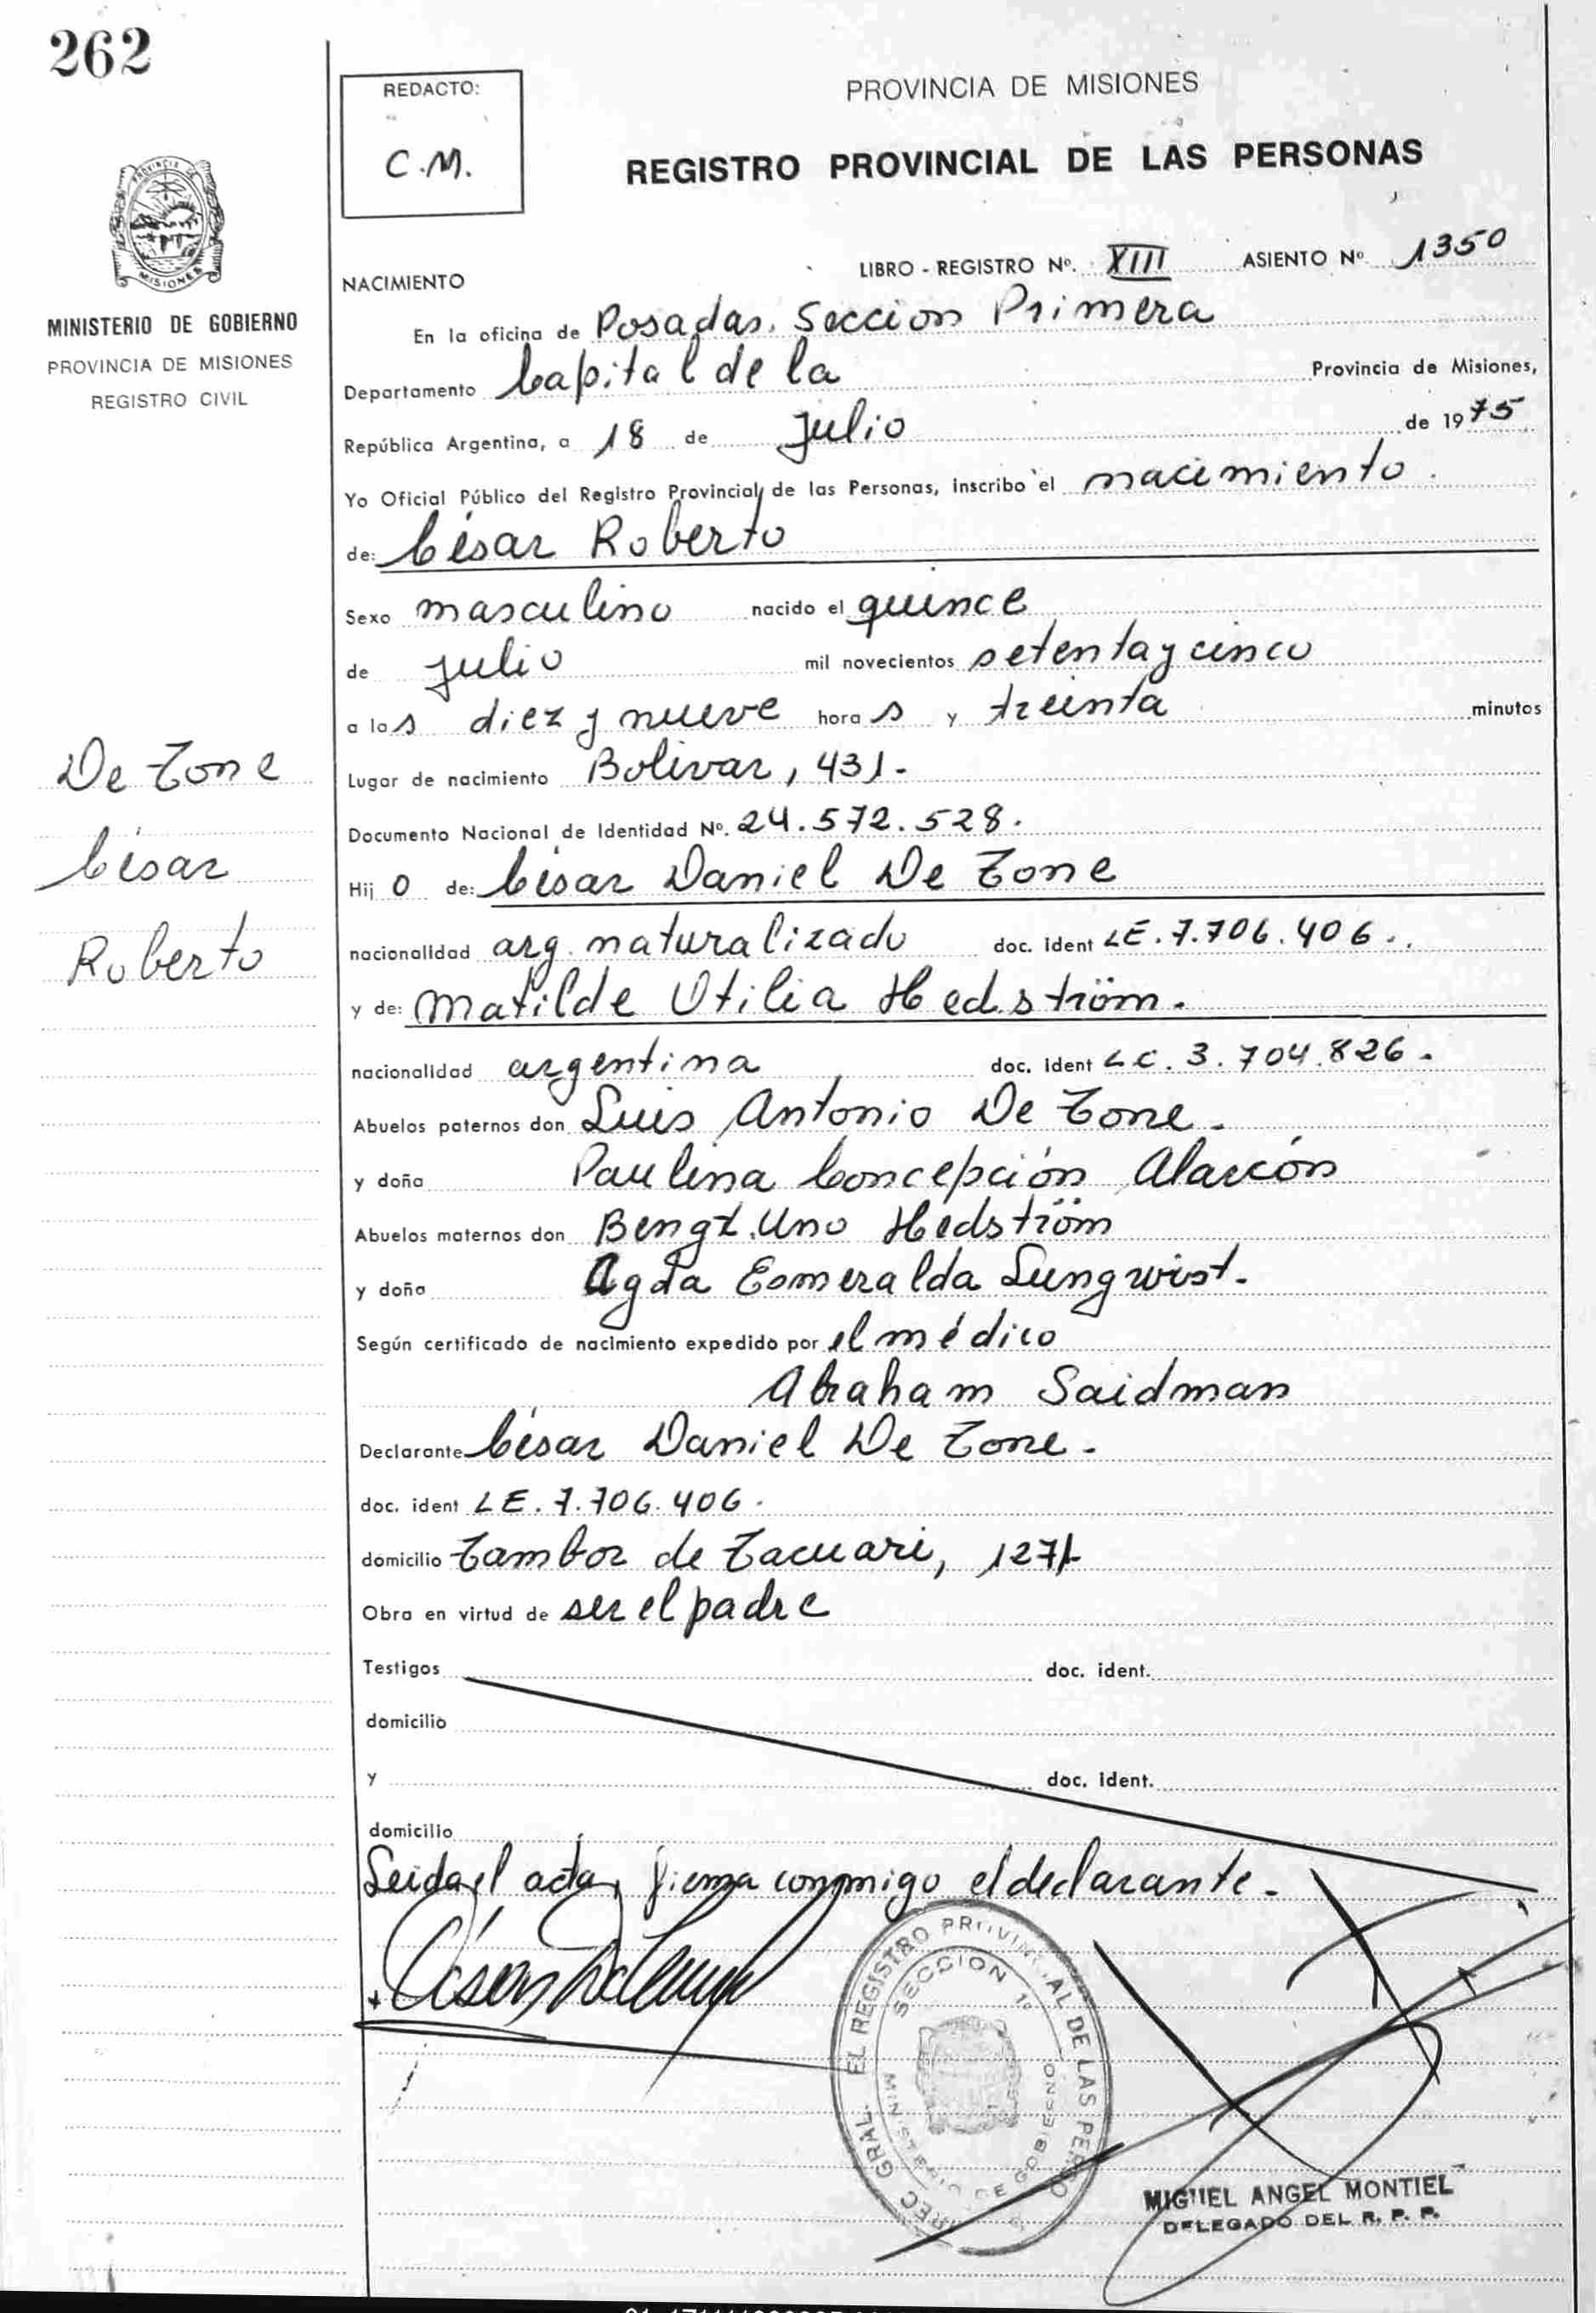 262
REDACTO:
C.M.
PROVINCIA DE MISIONES
REGISTRO PROVINCIAL DE LAS PERSONAS
PROVINCIA DE
MISIONES
MINISTERIO DE GOBIERNO
PROVINCIA DE MISIONES
REGISTRO CIVIL
NACIMIENTO
LIBRO - REGISTRO Nº. XIII ASIENTO Nº 1350
En la oficina de Posadas. Seccion Primera
Departamento Capital de la Provincia de Misiones,
República Argentina, a 18 de Julio de 1975
Yo Oficial Público del Registro Provincial de las Personas, inscribo el nacimiento.
de: César Roberto
Sexo masculino nacido el quince
de julio mil novecientos setenta y cinco
a las diez y nueve horas y treinta minutos
Lugar de nacimiento Bolivar, 431.-
Documento Nacional de Identidad Nº. 24.572.528.
Hijo de: César Daniel De Tone
nacionalidad arg. naturalizado doc. ident LE. 7.706.406..
y de: Matilde Otilia Hedström.
nacionalidad argentina doc. ident L.C. 3.704.826.
Abuelos paternos don Luis Antonio De Tone.
y doña Paulina Concepción Alarcón
Abuelos maternos don Bengt. Uno Hedström
y doña Agda Esmeralda Lungwist.
Según certificado de nacimiento expedido por el médico
Abraham Saidman
Declarante César Daniel De Tone.
doc. ident LE. 7.706.406.
domicilio Tambor de Tacuari, 1271-
Obra en virtud de ser el padre
Testigos doc. ident.
domicilio
y doc. ident.
domicilio
Leida el acta, firma conmigo el declarante.
De Tone
César
Roberto
REGISTRO PROVINCIAL DE LAS
SECCION 1º
MINISTERIO DE GOBIERNO
MIGUEL ANGEL MONTIEL
DELEGADO DEL R. P. P.